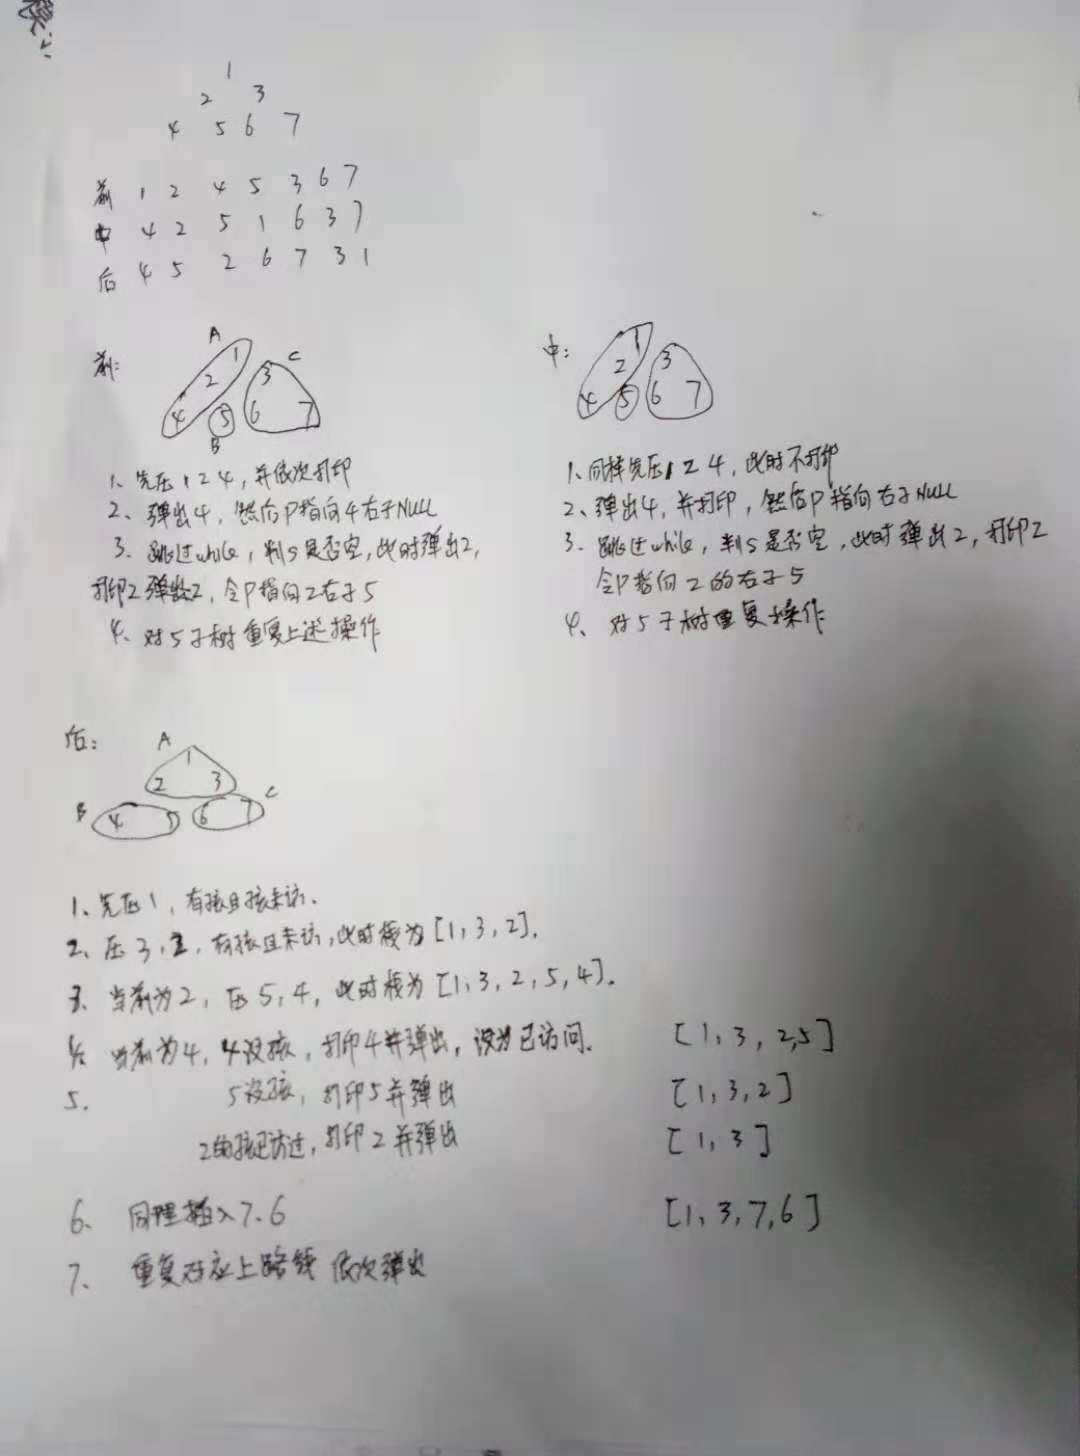 1
2 3
4 5 6 7
前 1 2 4 5 3 6 7
中 4 2 5 1 6 3 7
后 4 5 2 6 7 3 1
前:
A
1 C
2 3
4 5 6 7
B
1、先压 1 2 4, 并依次打印
2、弹出4, 然后P指向4右子NULL
3、跳过while, 判S是否空, 此时弹出2,
打印2 弹出2, 令P指向2右子5
4、对5子树重复上述操作
中:
1
2 3
4 5 6 7
1、同样先压 1 2 4, 此时不打印
2、弹出4, 并打印, 然后P指向右子NULL
3、跳过while, 判S是否空, 此时弹出2, 打印2
令P指向2的右子5
4、对5子树重复操作
后:
A
1
2 3
B C
4 5 6 7
1、先压1, 有孩且孩未访.
2、压3,2, 有孩且未访, 此时栈为[1,3,2].
3、当前为2, 压5,4, 此时栈为[1,3,2,5,4].
4、当前为4, 4没孩, 打印4并弹出, 设为已访问. [1,3,2,5]
5. 5没孩, 打印5并弹出 [1,3,2]
2的孩已访过, 打印2并弹出 [1,3]
6、同理插入7、6 [1,3,7,6]
7、重复对应上路线 依次弹出